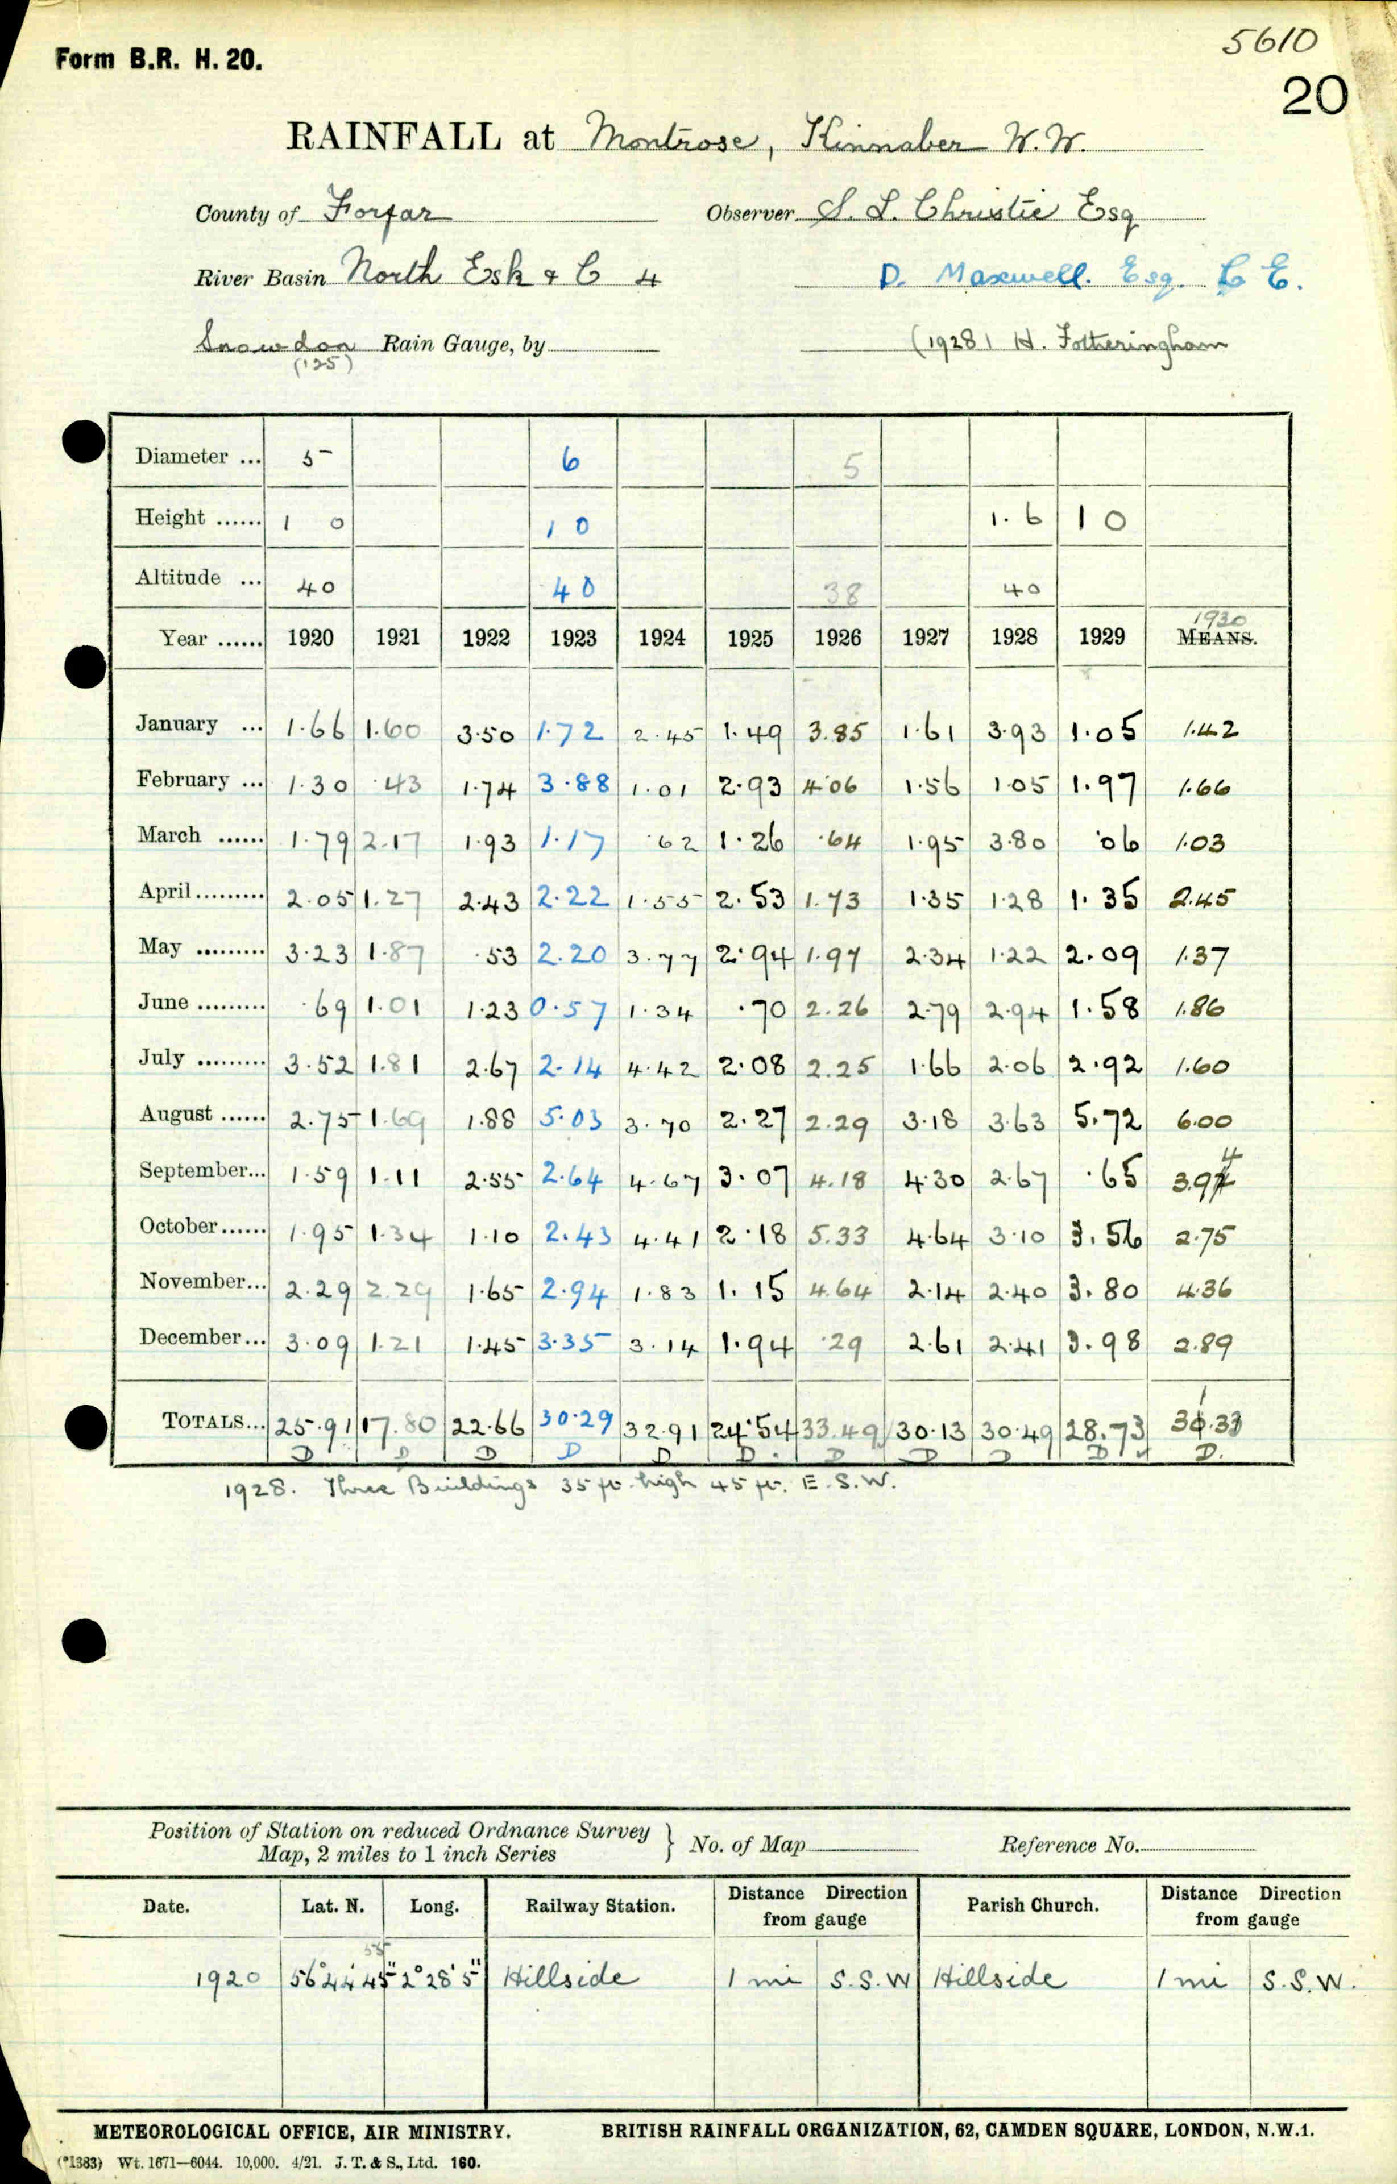 5610
Form B.R. H. 20.
20
RAINFALL at Montrose, Kinnaber W.W.
County of Forfar Observer S. L. Christie Esq
River Basin North Esk & C 4 D. Maxwell. Esq. C E.
Snowdon Rain Gauge, by (1928) H. Fotheringham
(125)
Diameter ... 5 6 5
Height ...... 1 0 1 0 1. 6 1 0
Altitude ... 40 40 38 40
1930
Year ...... 1920 1921 1922 1923 1924 1925 1926 1927 1928 1929 MEANS.
January ... 1.66 1.60 3.50 1.72 2.45 1.49 3.85 1.61 3.93 1.05 1.42
February ... 1.30 .43 1.74 3.88 1.01 2.93 4.06 1.56 1.05 1.97 1.66
March ...... 1.79 2.17 1.93 1.17 .62 1.26 .64 1.95 3.80 .06 1.03
April ......... 2.05 1.27 2.43 2.22 1.55 2.53 1.73 1.35 1.28 1.35 2.45
May ......... 3.23 1.87 .53 2.20 3.77 2.94 1.97 2.34 1.22 2.09 1.37
June ......... .69 1.01 1.23 0.57 1.34 .70 2.26 2.79 2.94 1.58 1.86
July ......... 3.52 1.81 2.67 2.14 4.42 2.08 2.25 1.66 2.06 2.92 1.60
August ...... 2.75 1.69 1.88 5.03 3.70 2.27 2.29 3.18 3.63 5.72 6.00
September... 1.59 1.11 2.55 2.64 4.67 3.07 4.18 4.30 2.67 .65 3.94
October...... 1.95 1.34 1.10 2.43 4.41 2.18 5.33 4.64 3.10 3.56 2.75
November... 2.29 2.29 1.65 2.94 1.83 1.15 4.64 2.14 2.40 3.80 4.36
December... 3.09 1.21 1.45 3.35 3.14 1.94 .29 2.61 2.41 3.98 2.89
TOTALS... 25.91 17.80 22.66 30.29 32.91 24.54 33.49 30.13 30.49 28.73 31.33
D D D D D D D D D D D.
1928. Three Buildings 35 ft. high 45 ft. E. S.W.
Position of Station on reduced Ordnance Survey
Map, 2 miles to 1 inch Series } No. of Map Reference No.
Date. Lat. N. Long. Railway Station. Distance Direction from gauge Parish Church. Distance Direction from gauge
55
1920 56°44'45" 2°28'5" Hillside 1 mi S.S.W Hillside 1 mi S.S.W.
METEOROLOGICAL OFFICE, AIR MINISTRY. BRITISH RAINFALL ORGANIZATION, 62, CAMDEN SQUARE, LONDON, N.W.1.
(*1383) Wt. 1671—6044. 10,000. 4/21. J. T. & S., Ltd. 160.